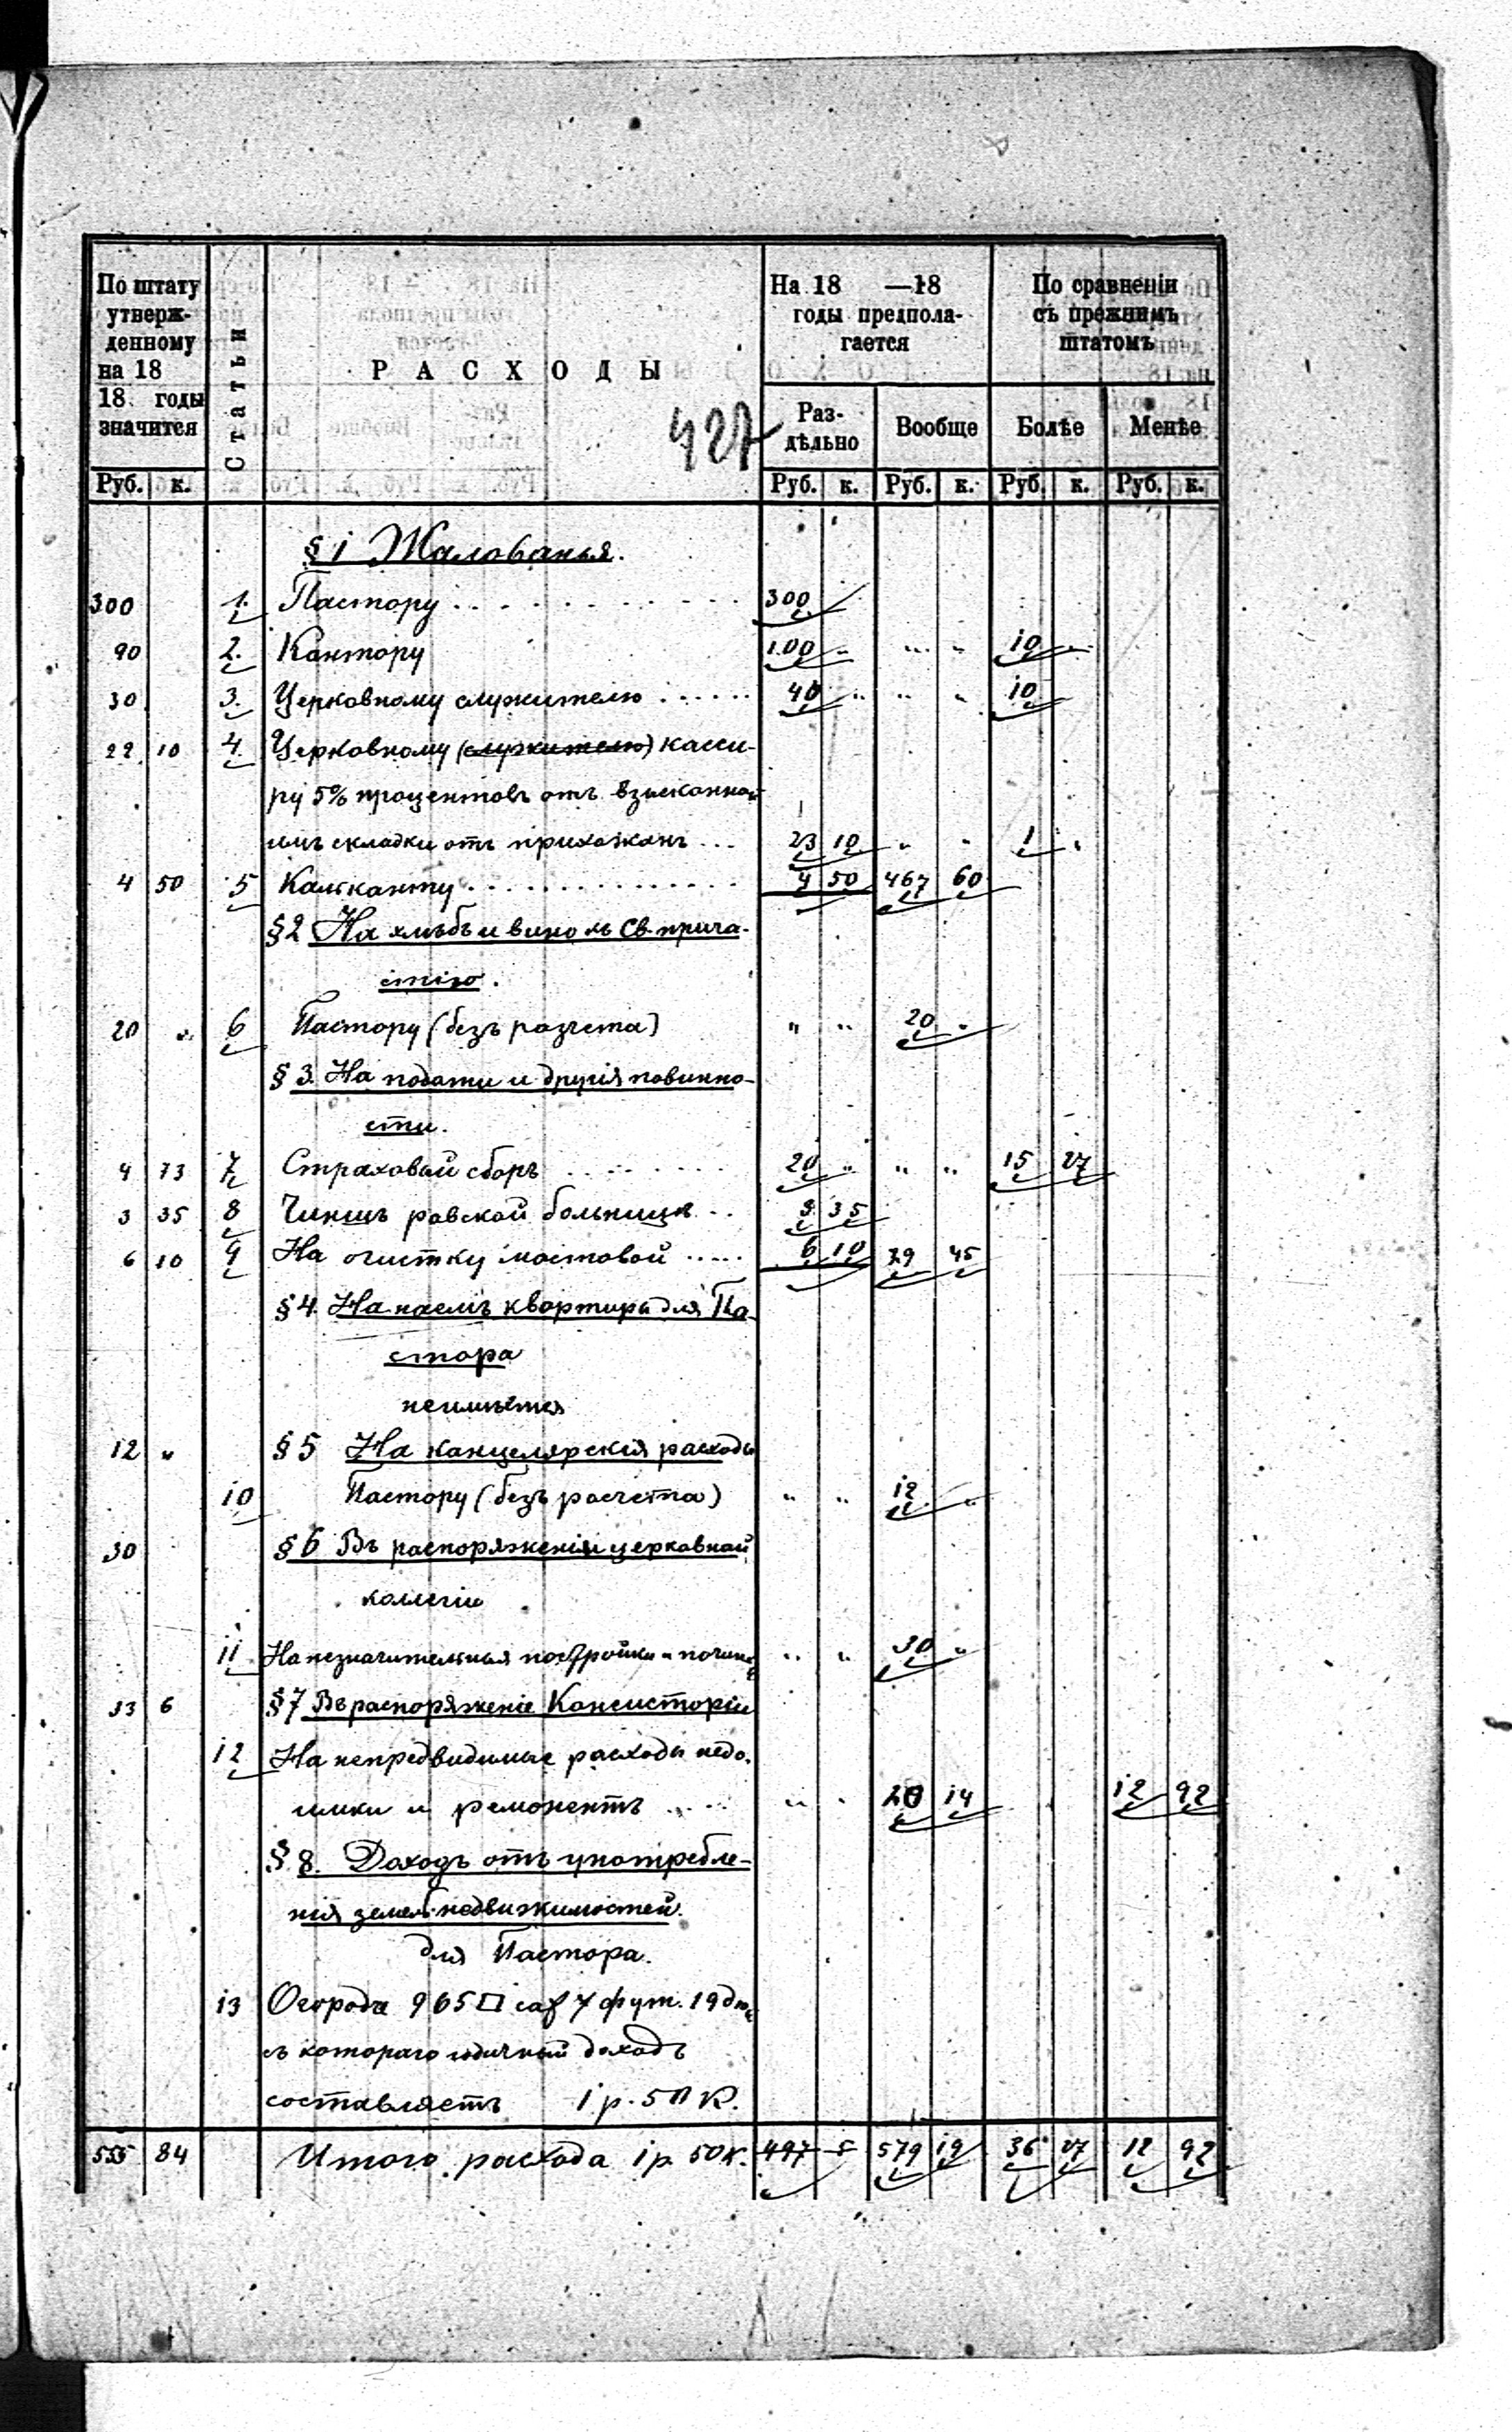 По штату утверж-денному на 18 18 годы значится
Статьи
РАСХОДЫ
На 18 —18 годы предпола-гается
По сравненіи съ прежнимъ штатомъ
427
Раз-дѣльно Вообще Болѣе Менѣе
Руб. к. Руб. к. Руб. к. Руб. к. Руб. к.
§ 1 Жалованья.
300 1. Пастору . . . . . . . . . . 300
90 2. Кантору 100 " " " 10 "
30 3. Церковному служителю . . . . . . 40 " " " 10
22 10 4. Церковному (служителю) касси-
ру 5% процентовъ отъ взысканной
имъ складки отъ прихожанъ . . . 23 10 " " 1 "
4 50 5 Калканту . . . . . . . . . . . . . 4 50 467 60
§ 2 На хлѣбъ и вино къ Св. прича-
стію.
20 " 6 Пастору (безъ разчета) " " 20 "
§ 3. На подати и другія повинно-
сти.
4 73 7 Страховой сборъ . . . . . . . . 20 " " " 15 27
3 35 8 Чиншъ равской больницѣ . . 3 35
6 10 9 На очистку мостовой . . . . . 6 10 29 45
§ 4. На наемъ квартиры для Па-
стора
неимѣется
12 " § 5 На канцелярскія расходы
10 Пастору (безъ расчета) " " 12 "
30 § 6 Въ распоряженіи церковной
коллегіи
11 На незначительныя постройки и починк " " 30 "
33 6 § 7 Въ распоряженіе Консисторіи
12 На непредвидимые расходы недо-
имки и ремонентъ . . . . " " 20 14 12 92
§ 8. Доходъ отъ употребле-
нія земель недвижимостей.
для Пастора.
13 Огорода 965 □ саж 7 фут. 19 дюй
съ котораго годичный доходъ
составляетъ 1 р. 50 К.
555 84 Итого расхода 1 р. 50 к. 497 5 579 19 36 27 12 92